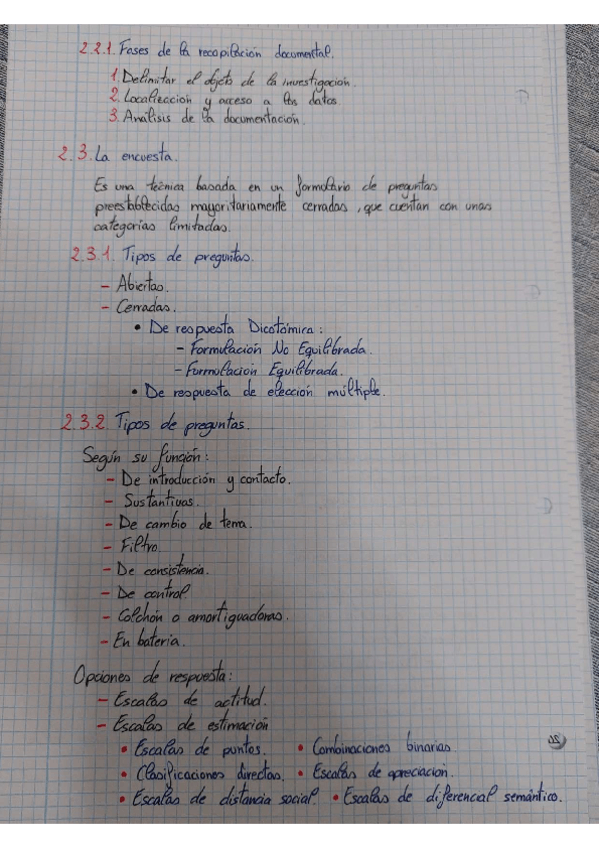 2.2.1. Fases de la recopilación documental.
1. Delimitar el objeto de la investigación.
2. Localización y acceso a los datos.
3. Análisis de la documentación.
2.3. La encuesta.
Es una técnica basada en un formulario de preguntas
preestablecidas mayoritariamente cerradas, que cuentan con unas
categorías limitadas.
2.3.1. Tipos de preguntas.
- Abiertas.
- Cerradas.
• De respuesta Dicotómica:
- Formulación No Equilibrada.
- Formulación Equilibrada.
• De respuesta de elección múltiple.
2.3.2. Tipos de preguntas.
Según su función:
- De introducción y contacto.
- Sustantivas.
- De cambio de tema.
- Filtro.
- De consistencia.
- De control
- Colchón o amortiguadoras.
- En batería.
Opciones de respuesta:
- Escalas de actitud.
- Escalas de estimación
• Escalas de puntos. • Combinaciones binarias
• Clasificaciones directas. • Escalas de apreciación.
• Escalas de distancia social. • Escalas de diferencial semántico.